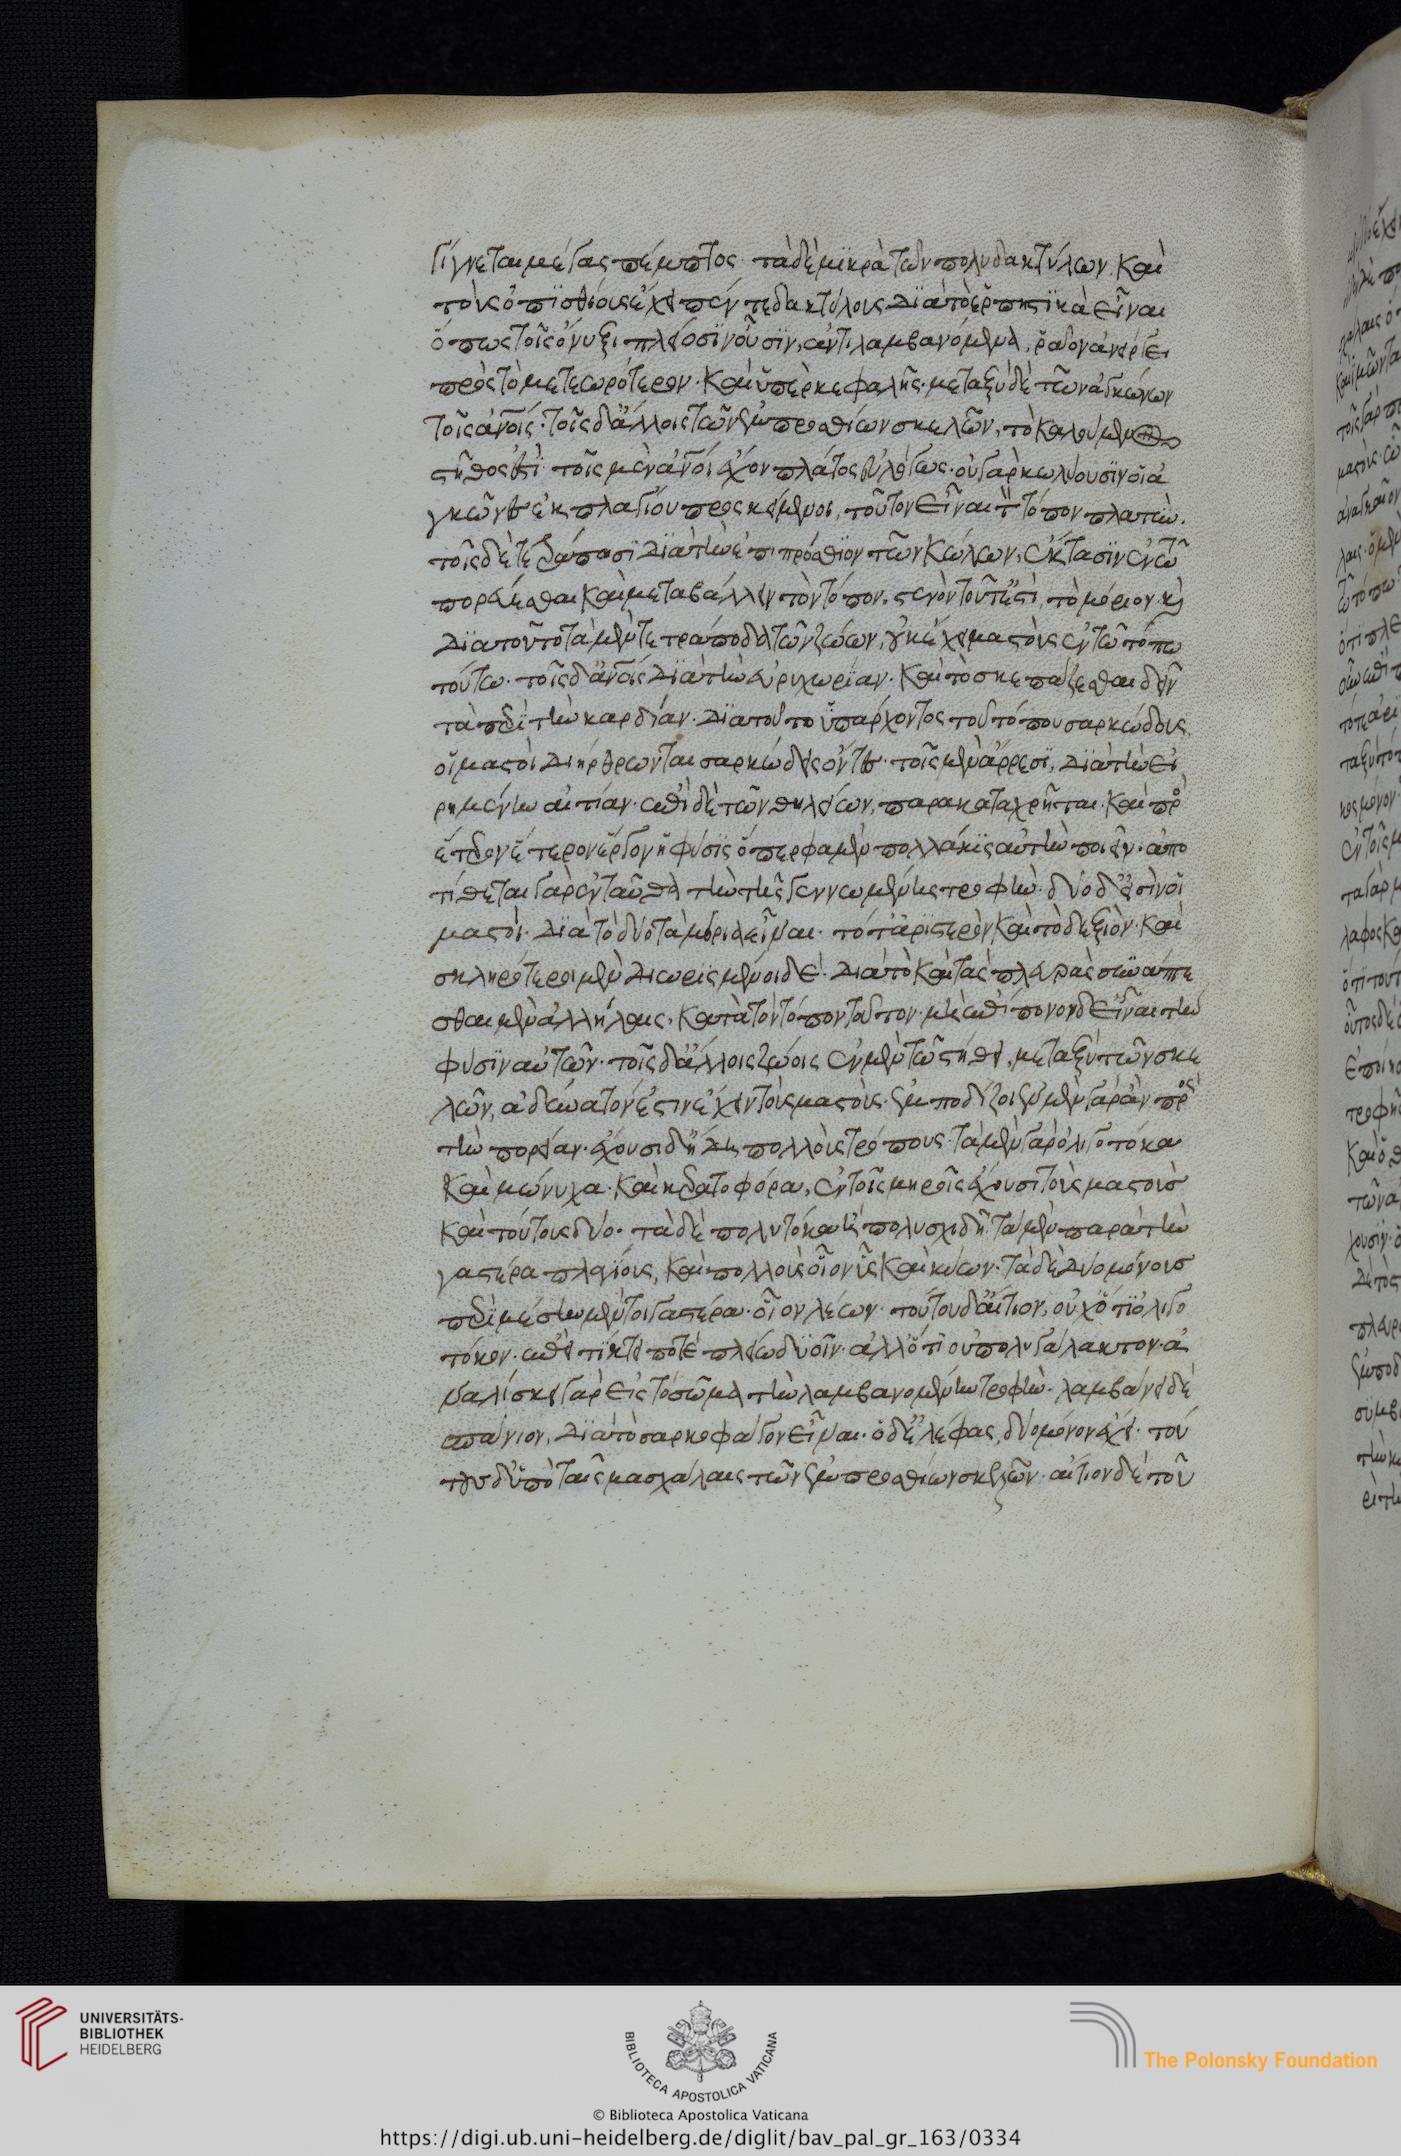 γίγνεται μέγας πέμπτος· τὰ δὲ μϊκρὰ τῶν πολυδακτύλων καὶ
τοὺς ὀπϊσθίους ἔχει πεντεδακτύλους διὰ τὸ ἑρπηστϊκὰ εἶναι
ὅπως τοῖς ὄνυξι πλείοσϊν οὖσϊν, ἀντιλαμβανόμενα, ῥᾶον ἀνέρπει
πρὸς τὸ μετεωρότερον· καὶ ὑπὲρ κεφαλῆς· μεταξὺ δὲ τῶν ἀγκώνων
τοῖς ἀνοις· τοῖς δ' ἄλλοις τῶν ἐμπροσθίων σκελῶν, τὸ καλούμενον
στῆθος ἐστὶ· τοῖς μὲν ἀνοις ἔχον πλάτος εὐλόγως· οὐ γὰρ κωλύουσϊν οἱ ἀ
γκῶνες ἐκ πλαγίου προσκείμενοι, τοῦτον εἶναι τὸν τόπον πλατὺν.
τοῖς δὲ τετράποσϊ διὰ τὴν ἐπιπρόσθϊον τῶν κώλων, ἔκτασϊν ἐν τῶ
πορεύεσθαι καὶ μεταβάλλειν τὸν τόπον, στενὸν τοῦτ' ἐστὶ, τὸ μόριον· καὶ
διὰ τοῦτο τὰ μὲν τετράποδα τῶν ζώων, οὐκ ἔχει μαστοὺς ἐν τῶ τόπω
τούτω· τοῖς δ' ἀνοις διὰ τὴν εὐρυχωρίαν· καὶ τὸ σκεπάζεσθαι δεῖν
τὰ περὶ τὴν καρδίαν· διὰ τοῦτο ὑπάρχοντος τοῦ τόπου σαρκώδους,
οἱ μαστοὶ διήρθρωνται σαρκώδεις ὄντες· τοῖς μὲν ἄρρεσϊ, διὰ τὴν εἰ
ρημένην αἰτίαν· ἐπὶ δὲ τῶν θηλείων, παρακατακέχρηται· καὶ πρὸς
ἕτερον ἕτερον ἔργον ἡ φύσϊς ὅπερ φαμὲν πολλάκϊς αὐτὴν ποιεῖν· ἀπο
τίθεται γὰρ ἐνταῦθα τὴν τῆς γεννωμένης τροφὴν· δύο δ' εἰσὶν οἱ
μαστοὶ· διὰ τὸ δύο τὰ μόρια εἶναι· τό τ' ἀριστερὸν καὶ τὸ δεξιὸν· καὶ
σκληρότεροι μὲν διωρϊσμένοι δὲ· διὰ τὸ καὶ τὰς πλευρὰς συνάπτε
σθαι μὲν ἀλλήλαις, κατὰ τὸν τόπον τοῦτον· μὴ ἐπίπονον δ' εἶναι τὴν
φύσϊν αὐτῶν· τοῖς δ' ἄλλοις ζώοις ἐν μὲν τῶ στήθει, μεταξὺ τῶν σκε
λῶν, ἀδύνατον ἐστιν ἔχειν τοὺς μαστοὺς· ἐμποδίζοιεν μὲν γὰρ ἂν πρὸς
τὴν πορείαν· ἔχουσι δ' ἤδη πολλοὺς τρόπους· τὰ μὲν γὰρ ὀλιγοτόκα
καὶ μώνυχα· καὶ κερατοφόρα, ἐν τοῖς μηροῖς ἔχουσι τοὺς μαστοὺσ
καὶ τούτους δύο· τὰ δὲ πολυτόκα ἢ πολυσχιδῆ· τὰ μὲν παρὰ τὴν
γαστέρα πλαγίους, καὶ πολλοὺς οἷον ὗς καὶ κύων· τὰ δὲ δύο μόνουσ
περὶ μέσην μέντοι γαστέρα· οἷον λέων· τούτου δ' αἴτιον, οὐχ ὅτϊ ὀλιγο
τόκον· ἐπεὶ τίκτει ποτὲ πλείω δυοῖν· ἀλλ' ὅτι οὐ πολυγάλακτον· ἀ
ναλίσκει γὰρ εἰς τὸ σῶμα τὴν λαμβανομένην τροφὴν· λαμβάνει δὲ
σπάνιον, διὰ τὸ σαρκοφάγον εἶναι· ὁ δ' ἐλέφας, δύο μόνον ἔχει· τού
τους δ' ὑπὸ ταῖς μασχάλαις τῶν ἐμπροσθίων σκελῶν· αἴτιον δὲ τοῦ
UNIVERSITÄTS-
BIBLIOTHEK
HEIDELBERG
BIBLIOTECA APOSTOLICA VATICANA
The Polonsky Foundation
© Biblioteca Apostolica Vaticana
https://digi.ub.uni-heidelberg.de/diglit/bav_pal_gr_163/0334